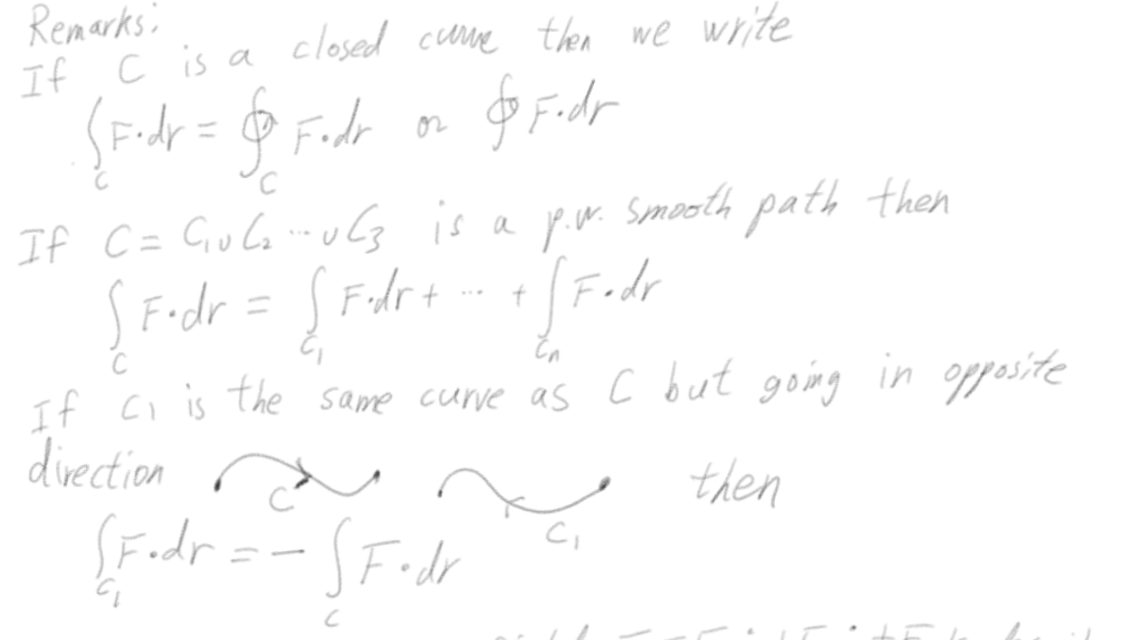 Remarks:
If C is a closed curve then we write
∫_C F·dr = ∮_C F·dr or ∮ F·dr
If C = C₁ ∪ C₂ ··· ∪ C₃ is a p.w. smooth path then
∫_C F·dr = ∫_{C₁} F·dr + ··· + ∫_{Cn} F·dr
If C₁ is the same curve as C but going in opposite
direction C C₁ then
∫_{C₁} F·dr = − ∫_C F·dr